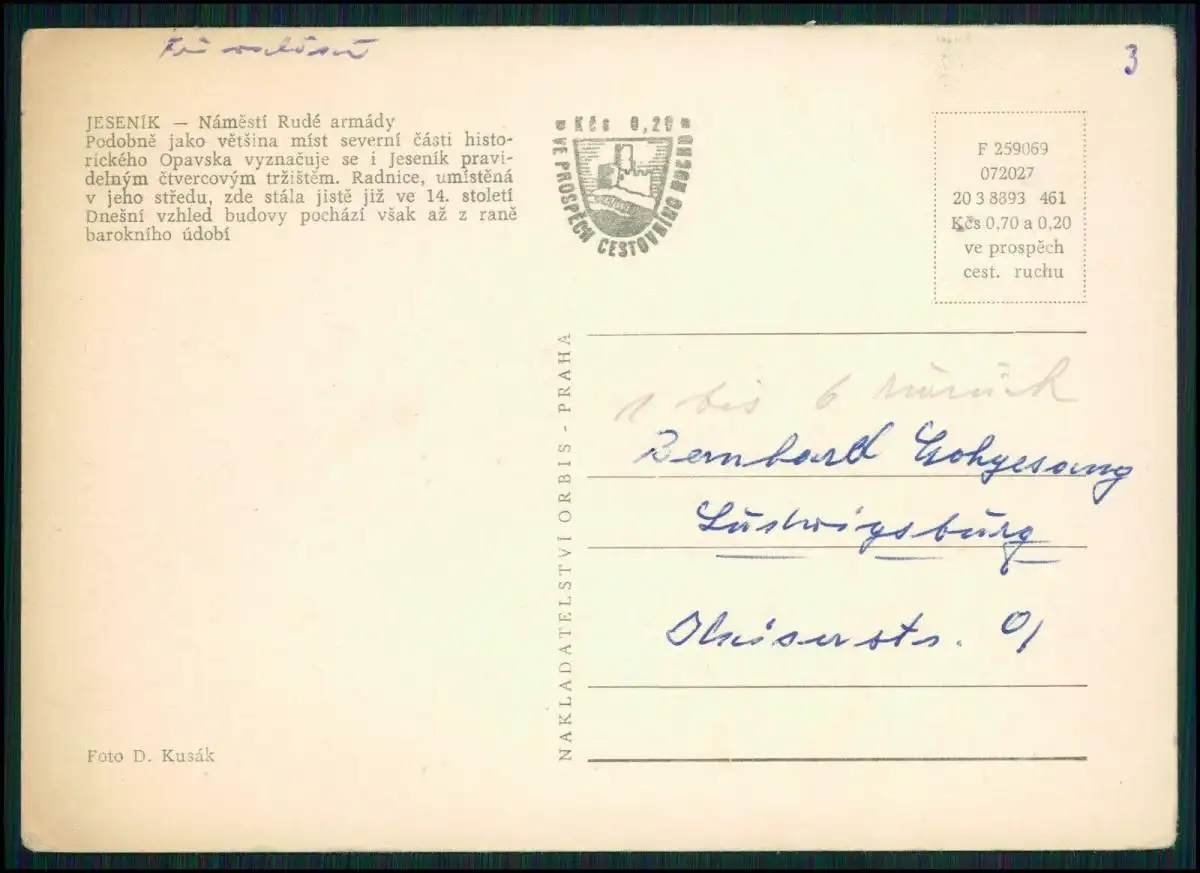 3
JESENÍK — Náměstí Rudé armády
Podobně jako většina míst severní části histo-
rického Opavska vyznačuje se i Jeseník pravi-
delným čtvercovým tržištěm. Radnice, umístěná
v jeho středu, zde stála jistě již ve 14. století
Dnešní vzhled budovy pochází však až z raně
barokního údobí
Kčs 0,20
VE PROSPĚCH CESTOVNÍHO RUCHU
F 259069
072027
20 3 8893 461
Kčs 0,70 a 0,20
ve prospěch
cest. ruchu
NAKLADATELSTVÍ ORBIS - PRAHA
1 bis 6 zurück
Bernhard
Ludwigsburg
Foto D. Kusák